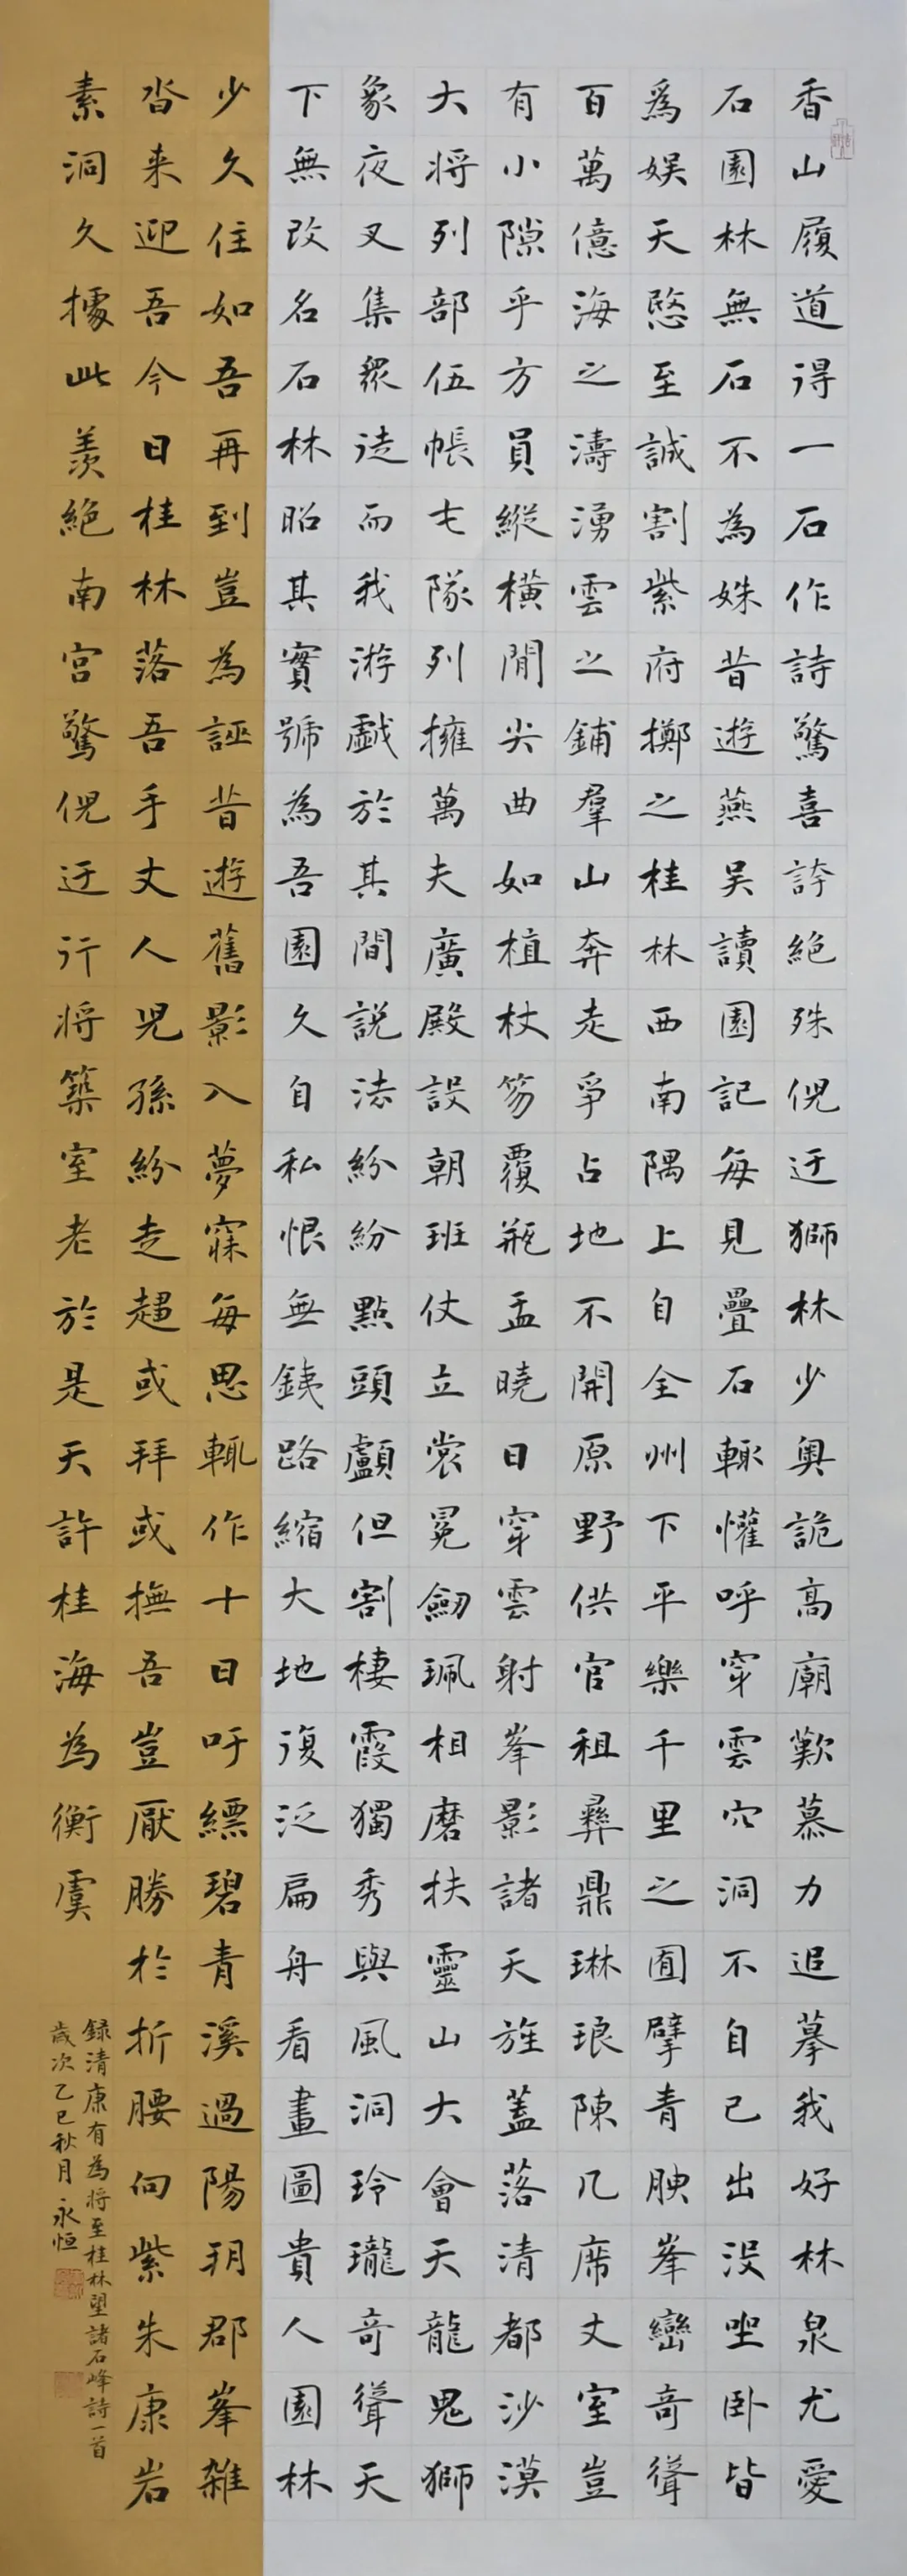 香山履道得一石作詩驚喜誇絕殊倪迂獅林少奥詭高廟歎慕力追摹我好林泉尤愛
石園林無石不為姝昔遊燕吴讀園記每見疊石輙懽呼穿雲穴洞不自已出没坐卧皆
爲娱天愍至誠割紫府擲之桂林西南隅上自全州下平樂千里之囿擘青腴峯巒奇聳
百萬億海之濤湧雲之鋪羣山奔走爭占地不開原野供官租彝鼎琳琅陳几席丈室豈
有小隙乎方員縱橫間尖曲如植杖笏覆瓶盂曉日穿雲射峯影諸天旌蓋落清都沙漠
大将列部伍帳屯隊列擁萬夫廣殿設朝班仗立裳冕劒珮相磨扶靈山大會天龍鬼獅
象夜叉集衆徒而我游戯於其間説法紛紛點頭顱但割棲霞獨秀與風洞玲瓏奇聳天
下無改名石林昭其實號為吾園久自私恨無錢路縮大地復泛扁舟看畫圖貴人園林
少久住如吾再到豈為誣昔遊舊影入夢寐每思輒作十日吁縹碧青溪過陽玥郡峯雜
沓来迎吾今日桂林落吾手丈人児孫紛走趨或拜或撫吾豈厭勝於折腰向紫朱康岩
素洞久據此羨絕南宫驚倪迂行将築室老於是天許桂海為衡虞
録清康有為将至桂林望諸石峰詩一首
歲次乙巳秋月永恒